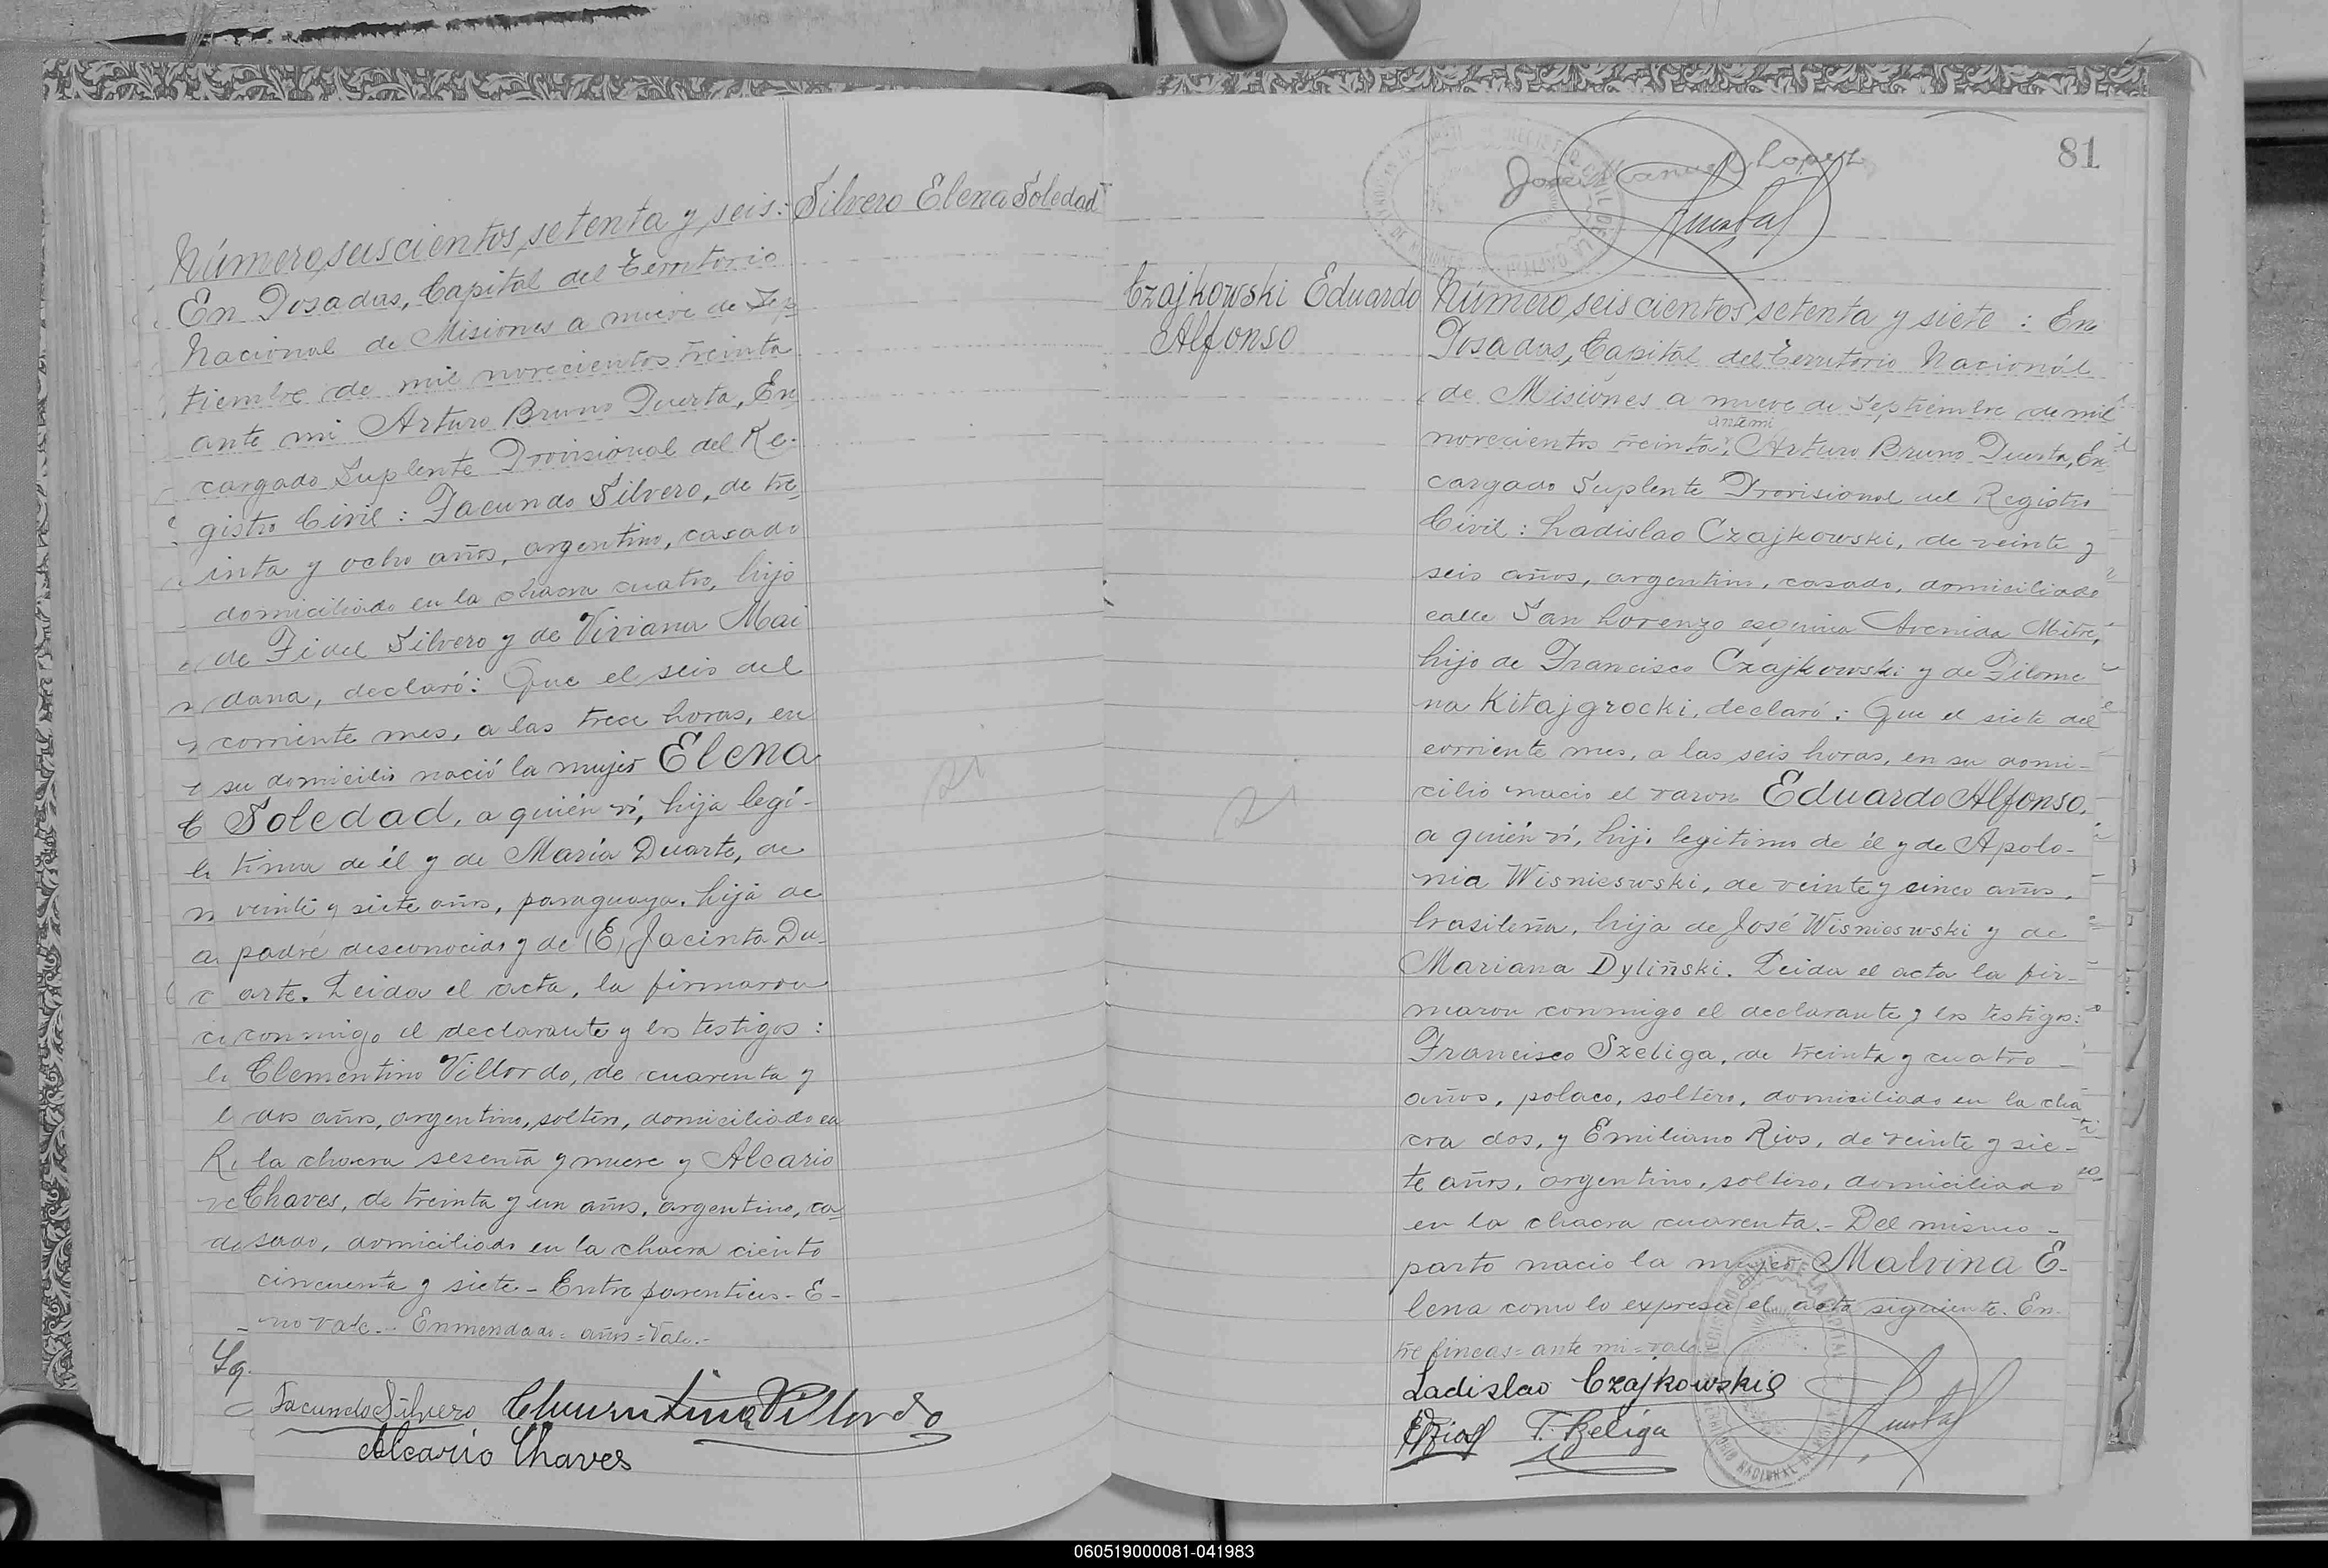 Número seiscientos setenta y seis: Silvero Elena Soledad
En Posadas, Capital del Territorio
Nacional de Misiones a nueve de Sep
tiembre de mil novecientos treinta
ante mi Arturo Bruno Puerta, En
cargado Suplente Provisional del Re-
gistro Civil: Facundo Silvero, de tre
inta y ocho años, argentino, casado
domiciliado en la chacra cuatro, hijo
de Fidel Silvero y de Viviana Mai
dana, declaró: Que el seis del
corriente mes, a las trece horas, en
su domicilio nació la mujer Elena
Soledad, a quién ví, hija legí-
tima de él y de María Duarte, de
veinte y siete años, paraguaya, hija de
padre desconocido y de (E) Jacinta Du-
arte. Leida el acta, la firmaron
conmigo el declarante y los testigos:
Clementino Villordo, de cuarenta y
dos años, argentino, soltero, domiciliado en
la chacra sesenta y nueve y Alcario
Chaves, de treinta y un años, argentino, ca-
sado, domiciliado en la chacra ciento
cincuenta y siete - Entre parentices - E -
no vale.- Enmendado = años = Vale.-
Facundo Silvero Clementino Villordo
Alcario Chaves
81
José Manuel Lopez
Czajkowski Eduardo
Alfonso
Número seiscientos setenta y siete: En
Posadas, Capital del Territorio Nacionál
de Misiones a nueve de Septiembre de mil
ante mi
novecientos treinta, Arturo Bruno Puerta, En
cargado Suplente Provisional del Registro
Civil: Ladislao Czajkowski, de veinte y
seis años, argentino, casado, domiciliado
calle San Lorenzo esquina Avenida Mitre,
hijo de Francisco Czajkowski y de Filome
na Kitajgrocki, declaró: Que el siete del
corriente mes, a las seis horas, en su domi-
cilio nacio el varon Eduardo Alfonso,
a quién ví, hijo legitimo de él y de Apolo-
nia Wisnieswski, de veinte y cinco años,
brasileña, hija de José Wisnieswski y de
Mariana Dyliñski. Leida el acta la fir-
maron conmigo el declarante y los testigos:
Francisco Szeliga, de treinta y cuatro
años, polaco, soltero, domiciliado en la cha
cra dos, y Emiliano Rios, de veinte y sie-
te años, argentino, soltero, domiciliado
en la chacra cuarenta.- Del mismo -
parto nacio la mujer Malvina E-
lena como lo expresa el acta siguiente. En-
tre lineas = ante mi = vale
Ladislao Czajkowski
ERios F. Szeliga
060519000081-041983